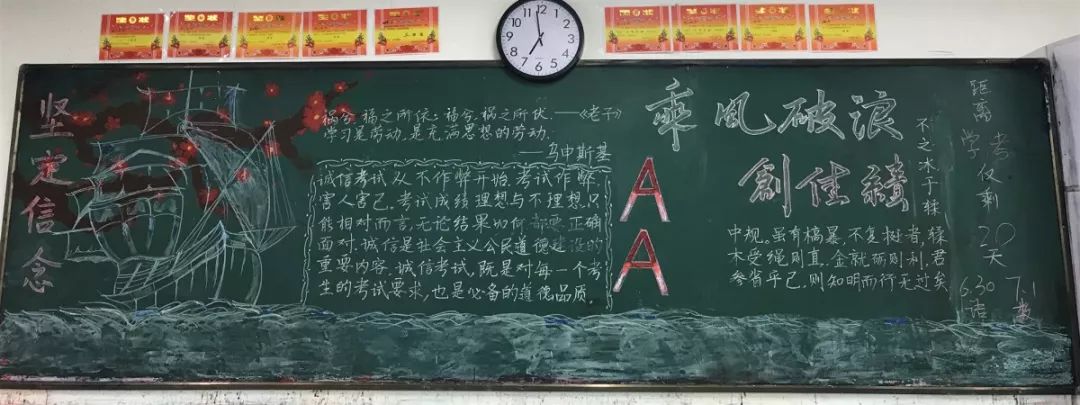 坚定信念
祸兮,福之所依;福兮,祸之所伏.——《老子》
学习是劳动,是充满思想的劳动.
——乌申斯基
诚信考试从不作弊开始.考试作弊,
害人害己.考试成绩理想与不理想,只
能相对而言,无论结果如何,都要正确
面对.诚信是社会主义公民道德建设的
重要内容.诚信考试,既是对每一个考
生的考试要求,也是必备的道德品质.
A
A
乘风破浪
創佳績
不之木于輮
中规。虽有槁暴,不复梃者,輮
木受绳则直,金就砺则利,君
参省乎己,则知明而行无过矣
距离学考仅剩20天
6.30 7.1
语 数